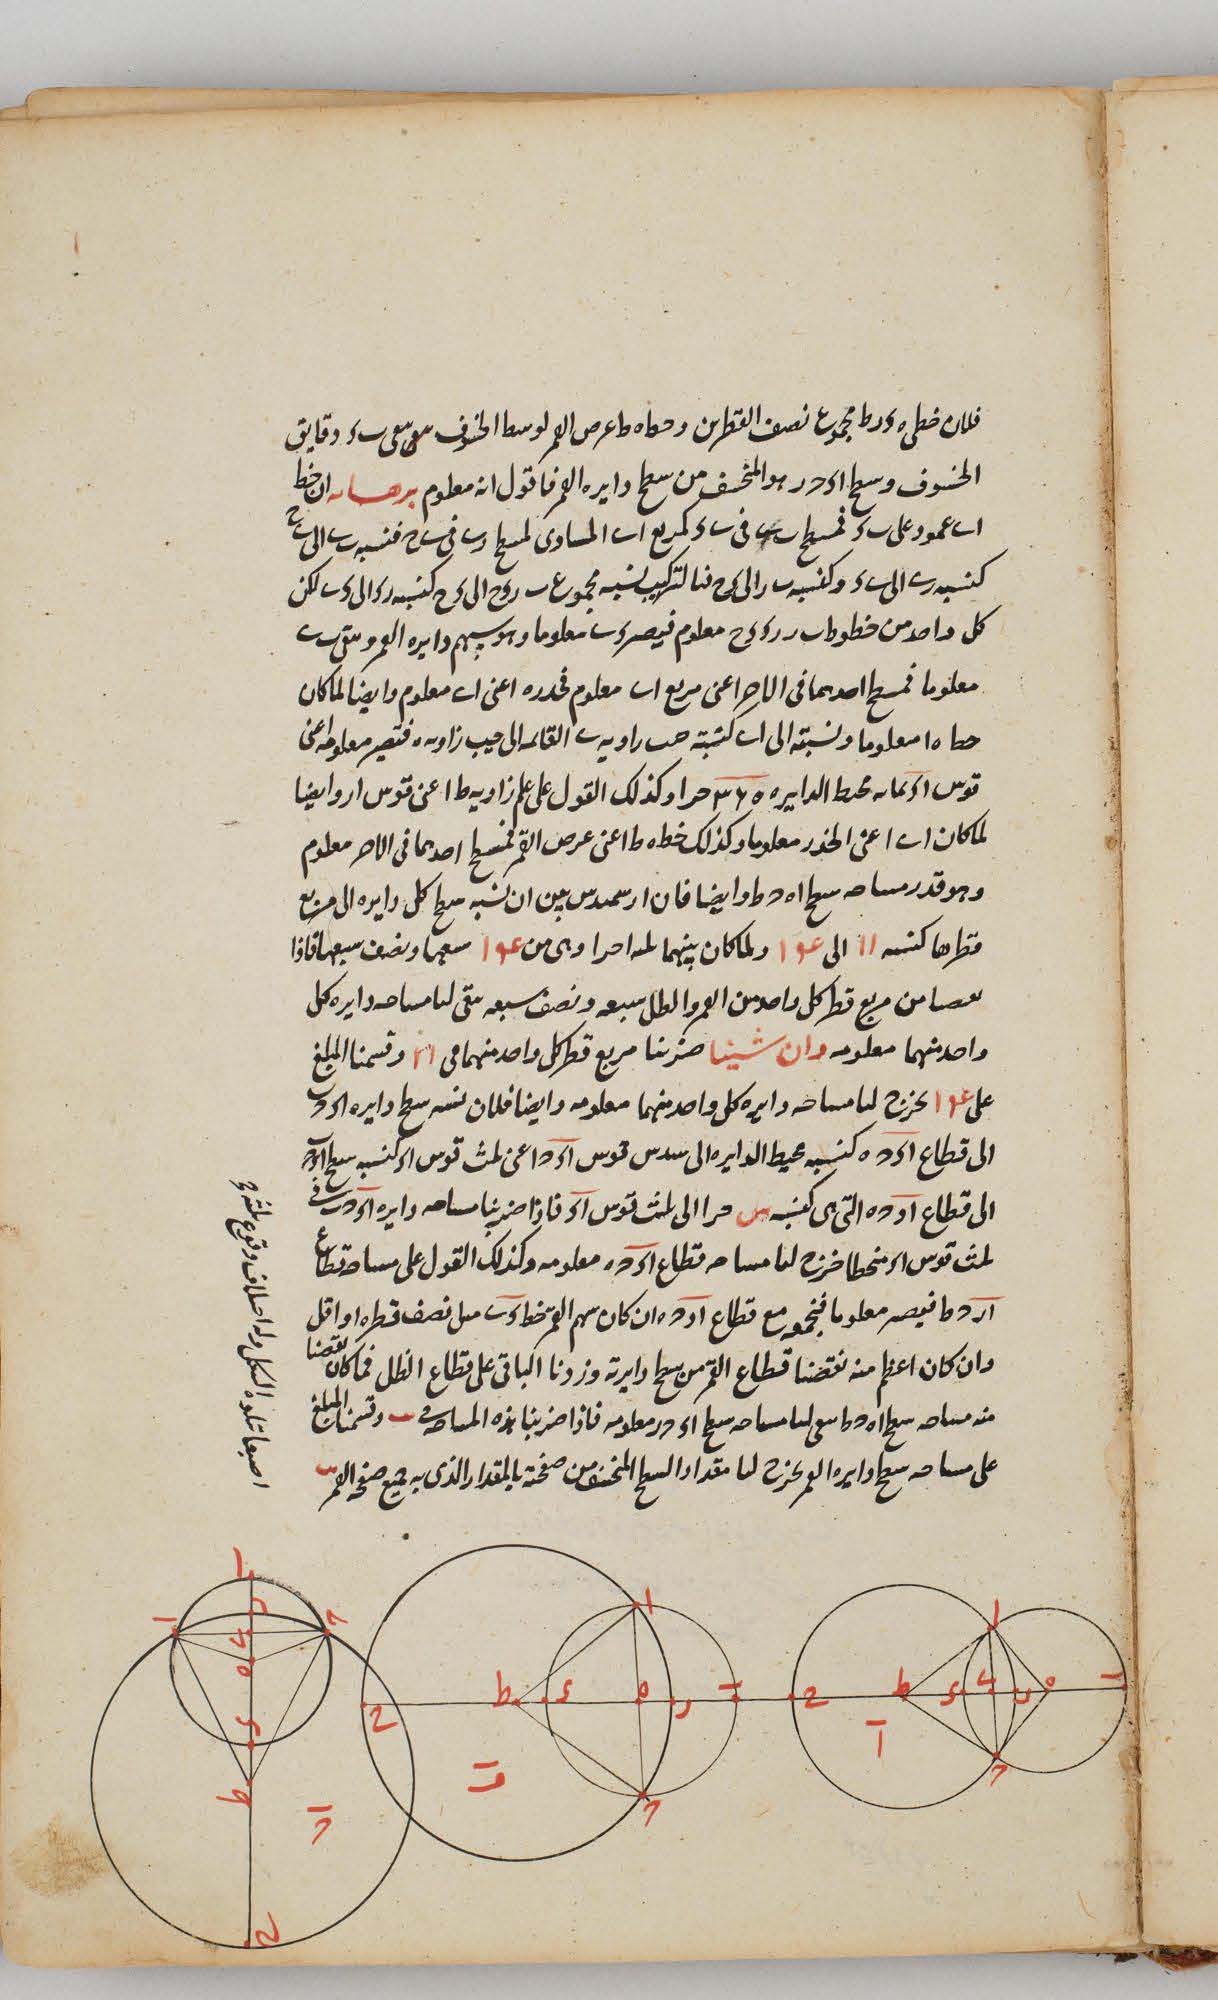 فلان خطى ه ر ط مجموع نصف القطرين و خط ه ط عرض القمر لوسط الخسوف يبقى ب ء دقايق
الخسوف و سطح ا ء ح ر هو المنخسف من سطح دايره القمر فاقول انه معلوم برهانه ان خط
ا ى عمود على ب ء فمسطح ب ى فى ى ء كمربع ا ى المساوى لمسطح ر ى فى ى ح فنسبه ب ى الى ى ح
كنسبه ر ى الى ى ء و كنسبه ب ر الى ء ح فبالتركيب نسبه مجموع ب ر ء ح الى ء ح كنسبه ر ء الى ء ى لكن
كل واحد من خطوط ب ر ر ء ء ح معلوم فيصير ء ى معلوما و هو سهم دايره القمر و يبقى ى ب
معلوما فمسطح احدهما فى الاخر اعنى مربع ا ى معلوم فجذره اعنى ا ى معلوم و ايضا لما كان
خط ه ا معلوما و نسبته الى ا ى كنسبة جيب زاويه ى القائمه الى جيب زاويه ه فتصير معلومه اعنى
قوس ا ء بما به محيط الدايره ٣٦٠ جزا و كذلك القول على علم زاويه ط اعنى قوس ا ر و ايضا
لما كان ا ى اعنى الجذر معلوما و كذلك خط ه ط اعنى عرض القمر فمسطح احدهما فى الاخر معلوم
و هو قدر مساحه سطح ا ه ح ط و ايضا فان ارسميدس بين ان نسبه سطح كل دايره الى مربع
قطرها كنسبه ١١ الى ١٤ و لما كان بينهما ثلثه اجزا و هى من ١٤ سبعها و نصف سبعها فاذا
نقصنا من مربع قطر كل واحد من القمر و الظل سبعه و نصف سبعه بقى لنا مساحه دايره كل
واحد منهما معلومه و ان شينا ضربنا مربع قطر كل واحد منهما فى ١١ و قسمنا المبلغ
على ١٤ يخرج لنا مساحه دايره كل واحد منهما معلومه و ايضا فلان نسبه سطح دايره ا ء ح ب
الى قطاع ا ء ح ه كنسبه محيط الدايره الى سدس قوس ا ء ح اعنى ثلث قوس ا ء كنسبه سطح ا ء ح ب
الى قطاع ا ء ح ه التى هى كنسبه س جزا الى ثلث قوس ا ء فاذا ضربنا مساحه دايره ا ء ح ب فى
ثلث قوس ا ء منحطا خرج لنا مساحه قطاع ا ء ح ه معلومه و كذلك القول على مساحه قطاع
ا ر ح ط فيصير معلوما فنجمعه مع قطاع ا ء ح ه ان كان سهم القمر خط ء ى مثل نصف قطره او اقل
و ان كان اعظم منه نقصنا قطاع القمر من سطح دايرته و زدنا الباقى على قطاع الظل فما كان نقصنا
منه مساحه سطح ا ه ح ط يبقى لنا مساحه سطح ا ء ح ر معلومه فاذا ضربنا هذه المساحه فى يب و قسمنا المبلغ
على مساحه سطح دايره القمر يخرج لنا مقدار السطح المنخسف من صفحته بالمقدار الذى به جميع صفحه القمر يب
اصبعا تلوه الشكل و له اختلاف وقوع ثلثه
ا
ب
ح